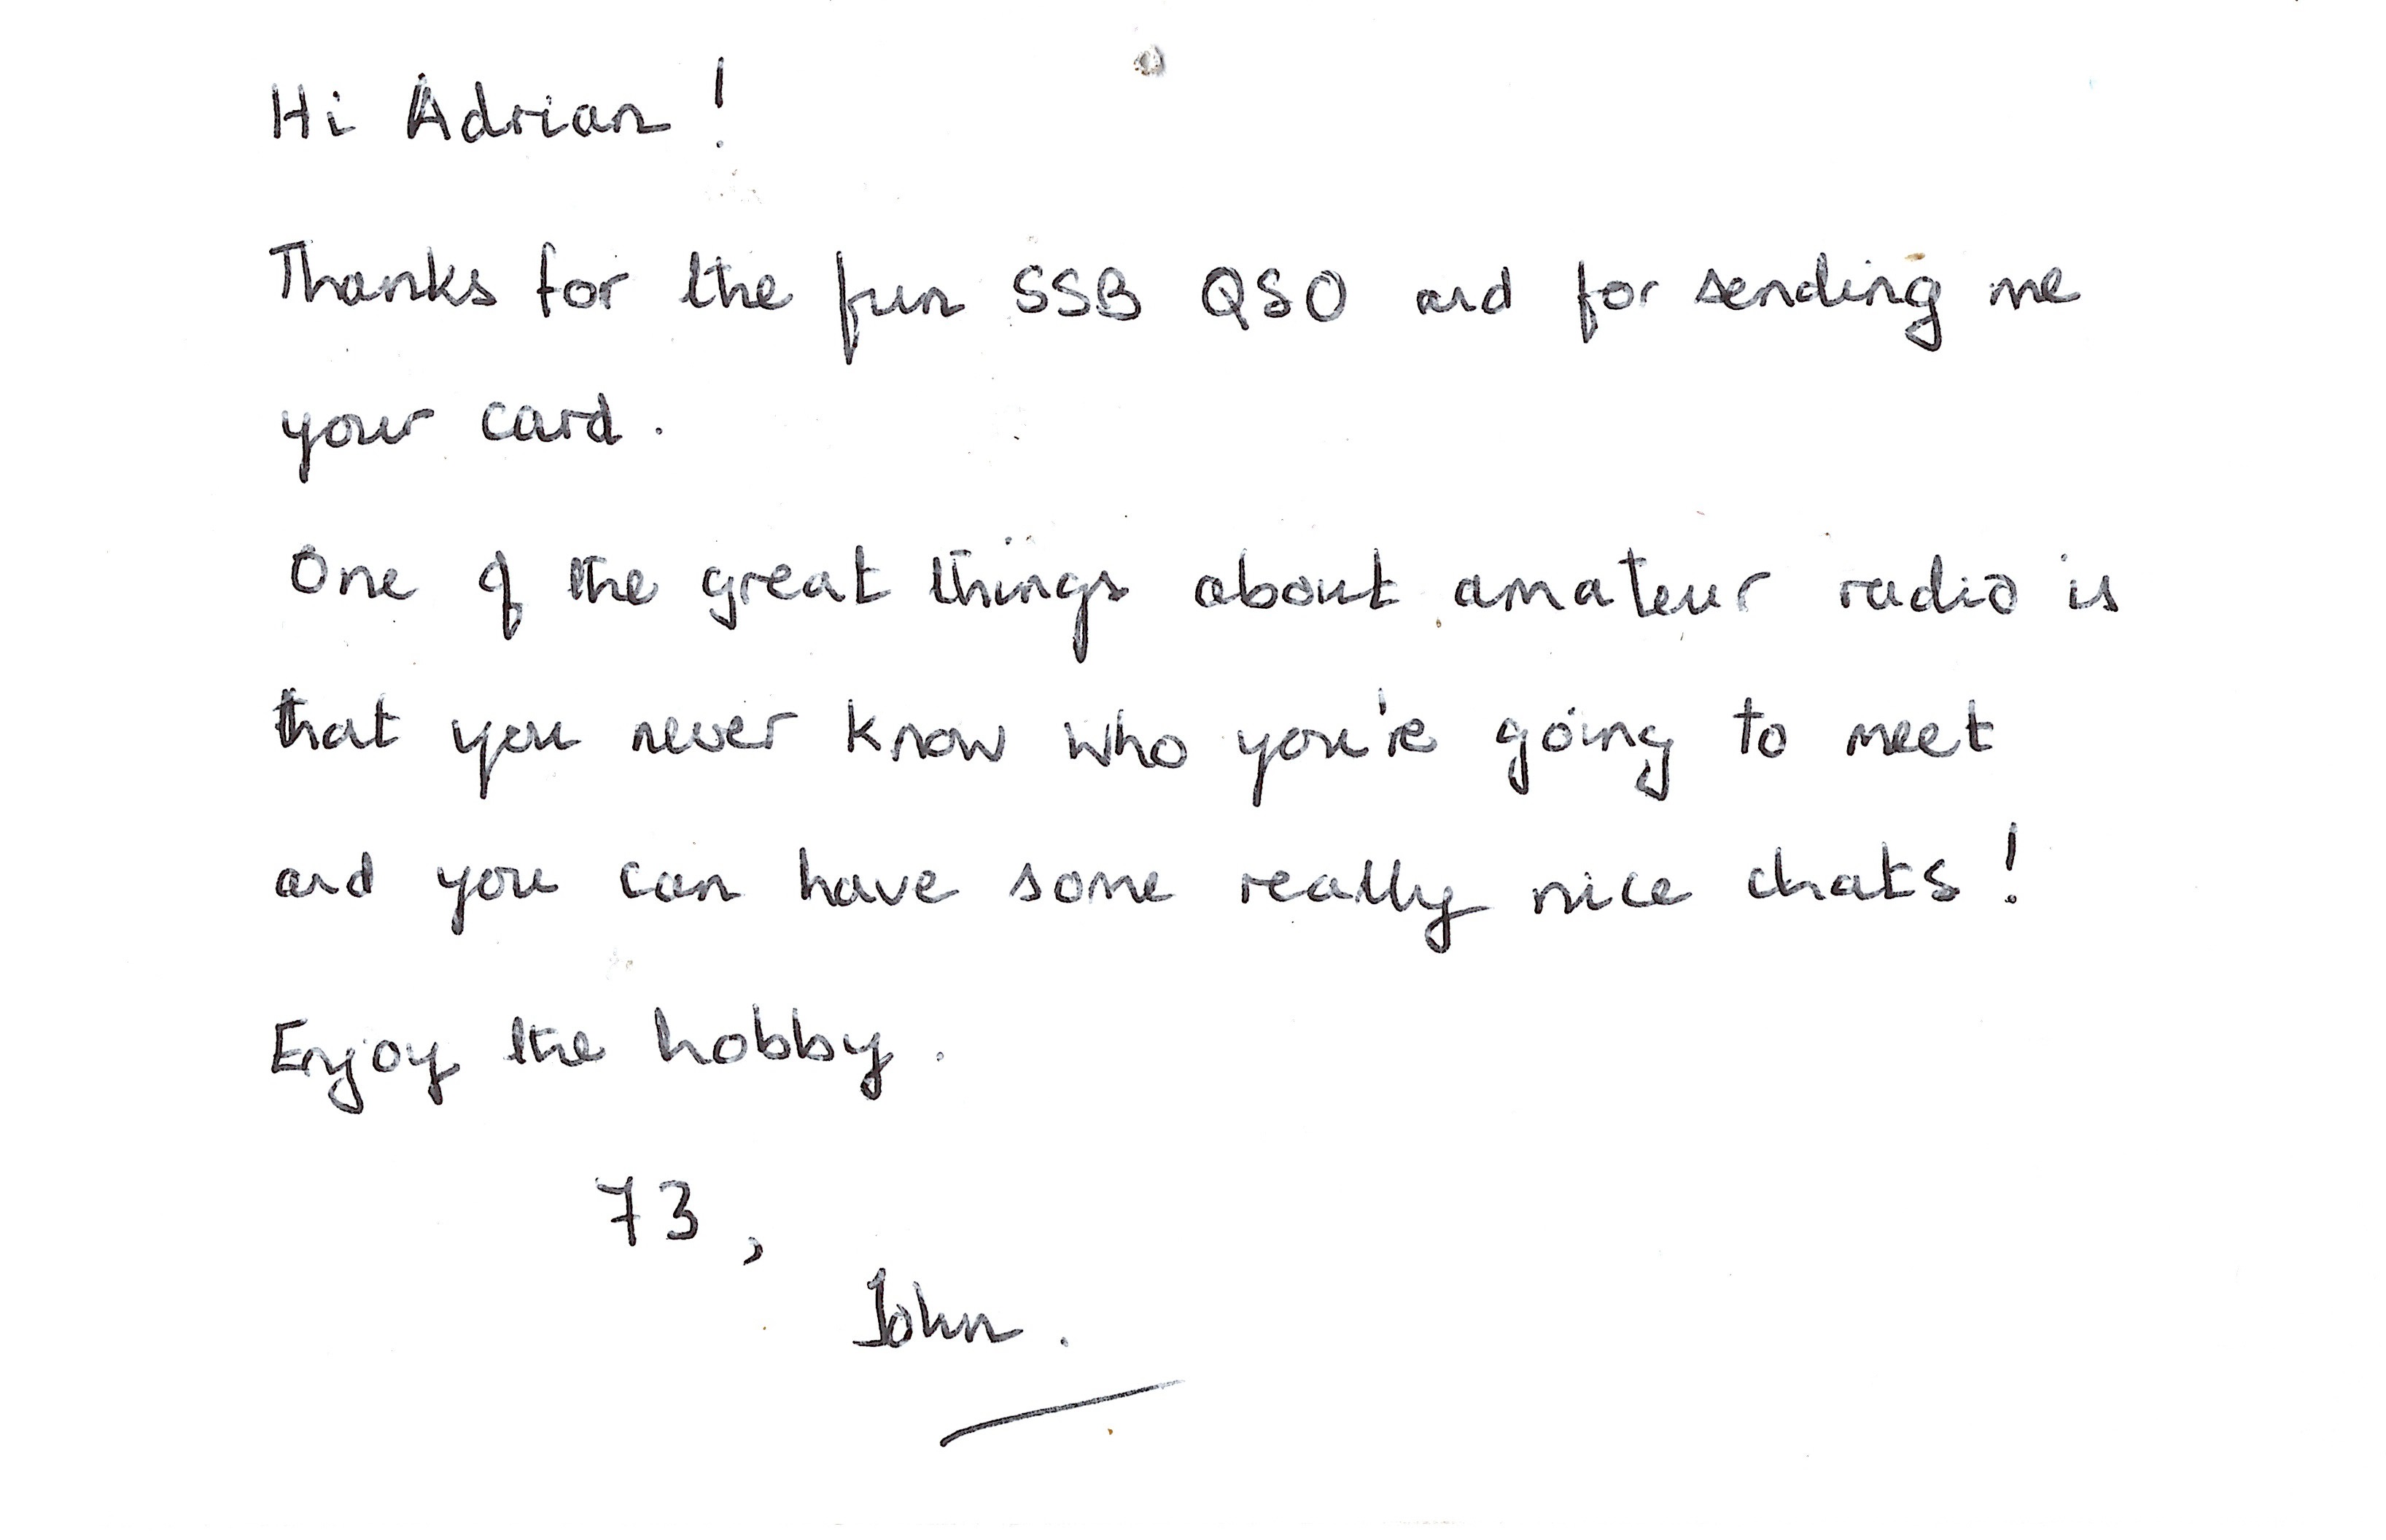 Hi Adrian!
Thanks for the fun SSB QSO and for sending me
your card.
One of the great things about amateur radio is
that you never know who you're going to meet
and you can have some really nice chats!
Enjoy the hobby.
73,
John.